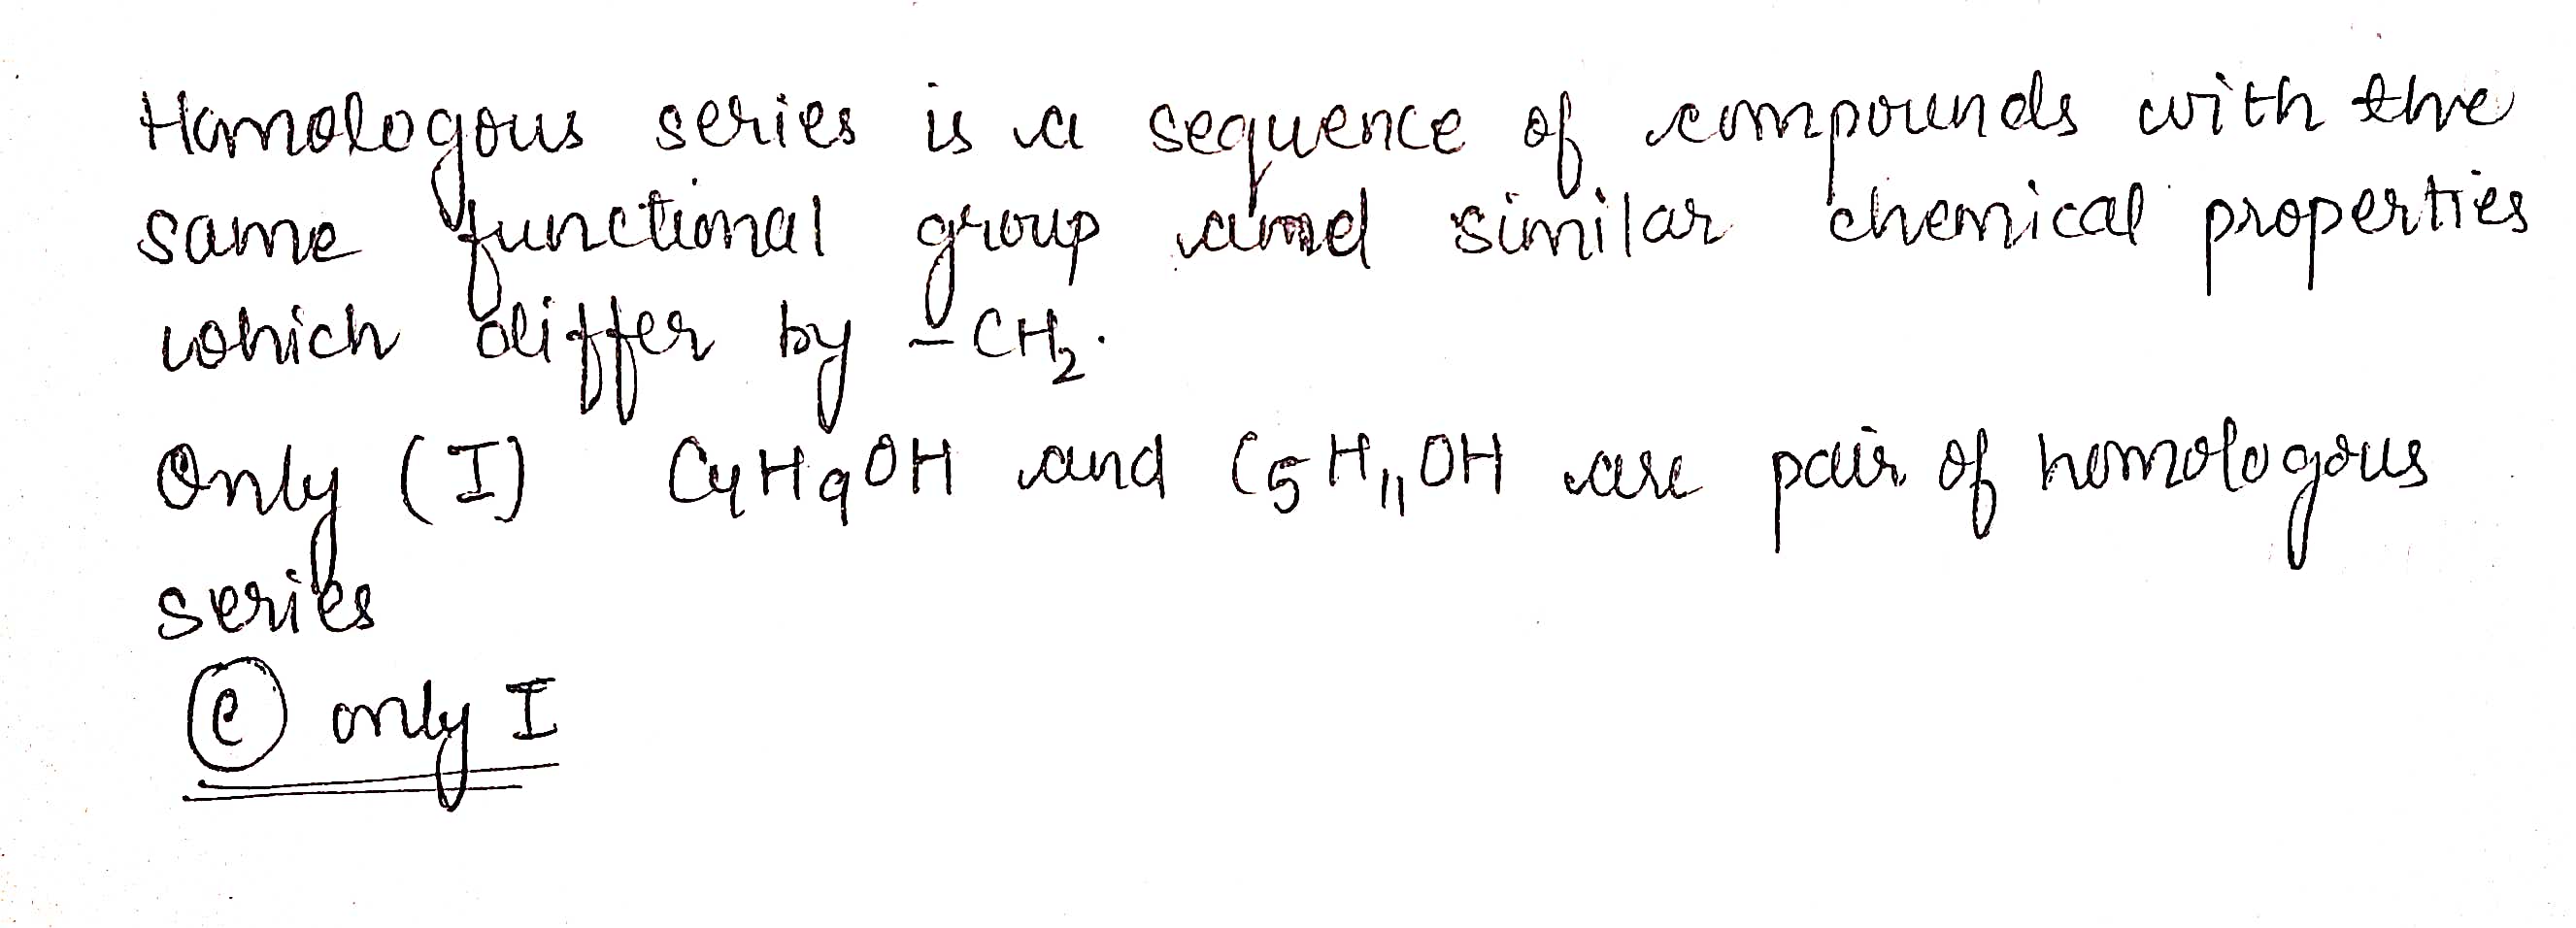 Homologous series is a sequence of compounds with the
same functional group and similar chemical properties
which differ by -CH₂.
Only (I) C₄H₉OH and C₅H₁₁OH are pair of homologous
series
ⓒ only I